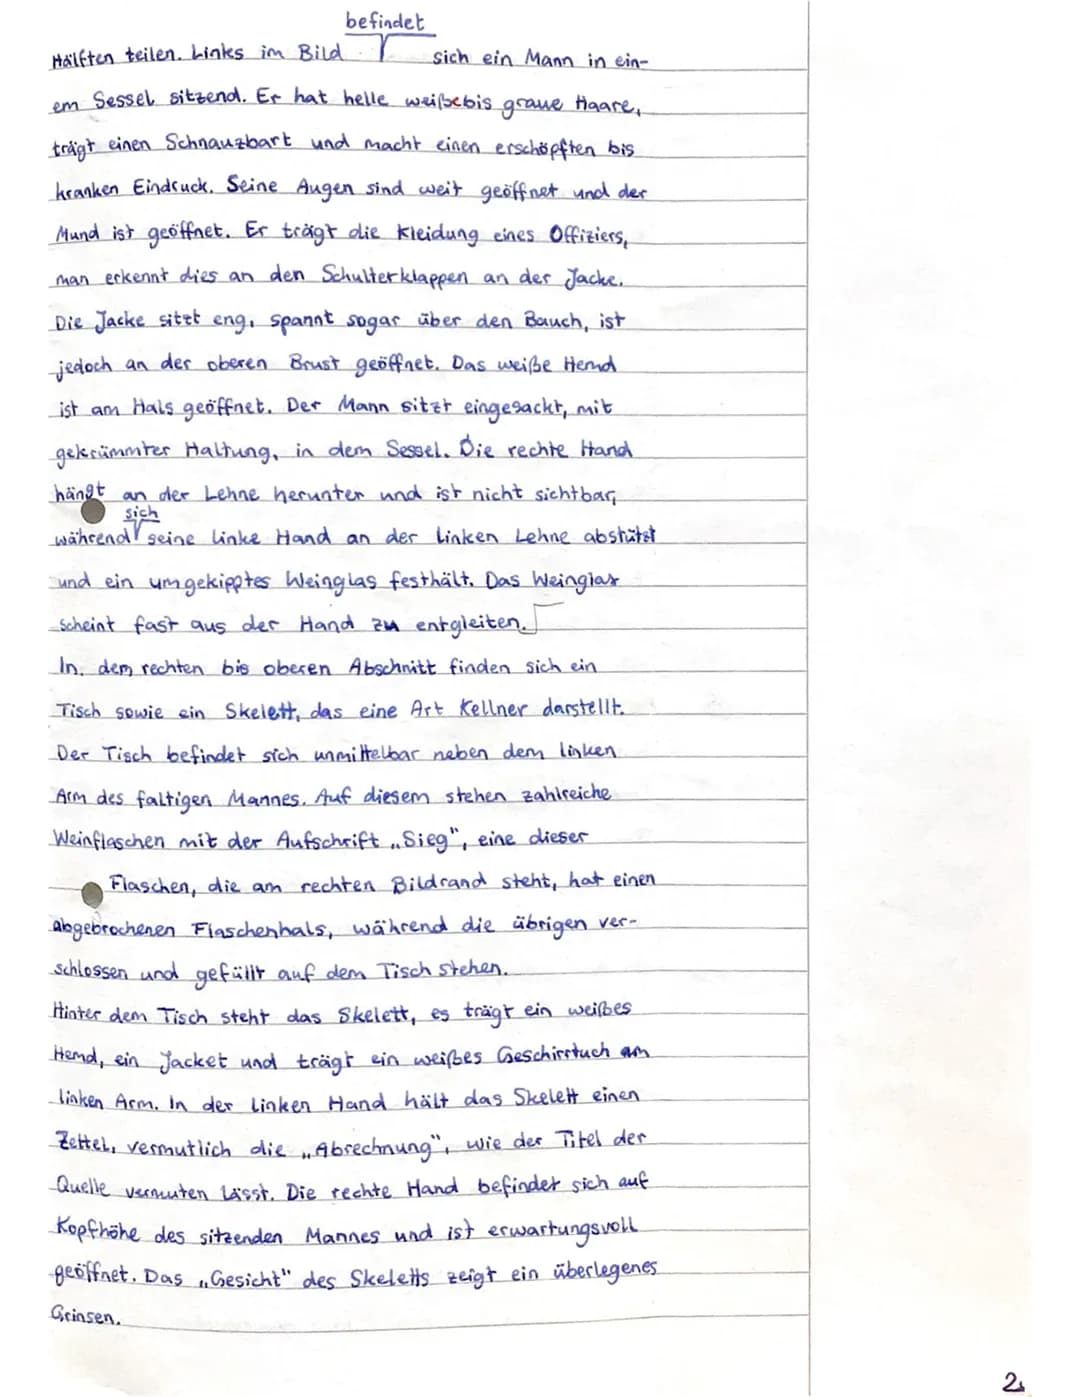 befindet
Hälften teilen. Links im Bild sich ein Mann in ein-
em Sessel sitzend. Er hat helle weiße bis graue Haare,
trägt einen Schnauzbart und macht einen erschöpften bis
kranken Eindruck. Seine Augen sind weit geöffnet und der
Mund ist geöffnet. Er trägt die Kleidung eines Offiziers,
man erkennt dies an den Schulterklappen an der Jacke.
Die Jacke sitzt eng, spannt sogar über den Bauch, ist
jedoch an der oberen Brust geöffnet. Das weiße Hemd
ist am Hals geöffnet. Der Mann sitzt eingesackt, mit
gekrümmter Haltung, in dem Sessel. Die rechte Hand
hängt an der Lehne herunter und ist nicht sichtbar,
sich
während seine linke Hand an der linken Lehne abstützt
und ein umgekipptes Weinglas festhält. Das Weinglas
scheint fast aus der Hand zu entgleiten.
In dem rechten bis oberen Abschnitt finden sich ein
Tisch sowie ein Skelett, das eine Art Kellner darstellt.
Der Tisch befindet sich unmittelbar neben dem linken
Arm des faltigen Mannes. Auf diesem stehen zahlreiche
Weinflaschen mit der Aufschrift „Sieg", eine dieser
Flaschen, die am rechten Bildrand steht, hat einen
abgebrochenen Flaschenhals, während die übrigen ver-
schlossen und gefüllt auf dem Tisch stehen.
Hinter dem Tisch steht das Skelett, es trägt ein weißes
Hemd, ein Jacket und trägt ein weißes Geschirrtuch am
linken Arm. In der linken Hand hält das Skelett einen
Zettel, vermutlich die „Abrechnung", wie der Titel der
Quelle vermuten lässt. Die rechte Hand befindet sich auf
Kopfhöhe des sitzenden Mannes und ist erwartungsvoll
geöffnet. Das „Gesicht" des Skeletts zeigt ein überlegenes
Grinsen.
2.